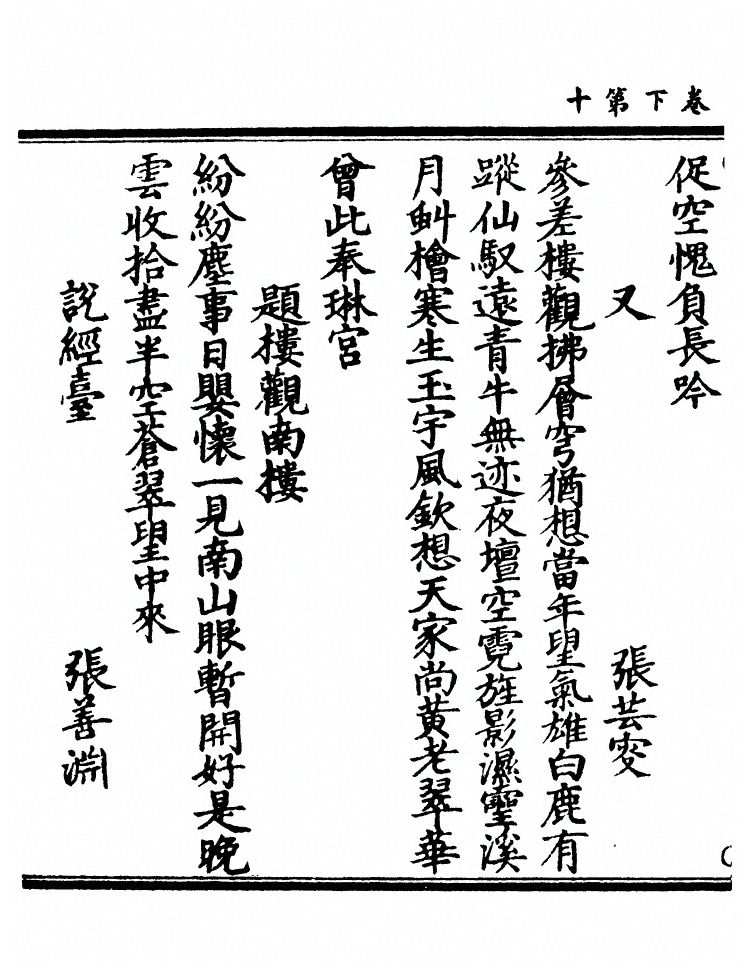 卷下第十
促空愧負長吟
又 張芸叟
參差樓觀拂層穹猶想當年望氣雄白鹿有
蹤仙馭遠青牛無迹夜壇空霓旌影濕靈溪
月虯檜寒生玉宇風欽想天家尚黃老翠華
曾此奉琳宮
題樓觀南樓
紛紛塵事日嬰懷一見南山眼暫開好是晚
雲收拾盡半空蒼翠望中來
說經臺 張善淵